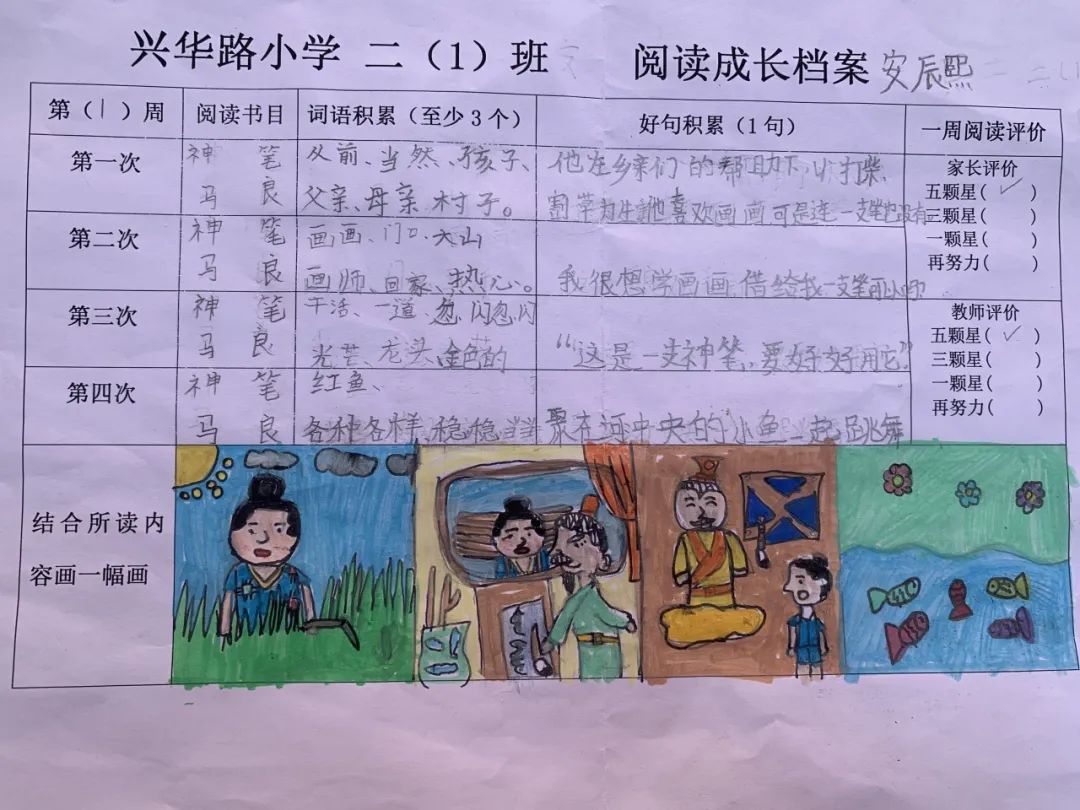 兴华路小学 二（1）班 阅读成长档案 安辰熙
第（1）周 阅读书目 词语积累（至少3个） 好句积累（1句） 一周阅读评价
第一次
神笔
马良
父前、当然、孩子、
父亲、母亲、村子。
他在乡亲们的帮助下，以打柴、
割草为生，他喜欢画画可是连一支笔也没有
第二次
神笔
马良
画画、门口、大山
画师、回家、热心。
我很想学画画，借给我一支笔可以吗?
第三次
神笔
马良
干活、一道、忽闪忽闪
光芒、龙头、金色的
“这是一支神笔，要好好用它”
第四次
神笔
马良
红鱼、
各种各样、稳稳当当
聚在河中央的小鱼一起跳舞
家长评价
五颗星(✓)
三颗星( )
一颗星( )
再努力( )
教师评价
五颗星(✓)
三颗星( )
一颗星( )
再努力( )
结合所读内
容画一幅画